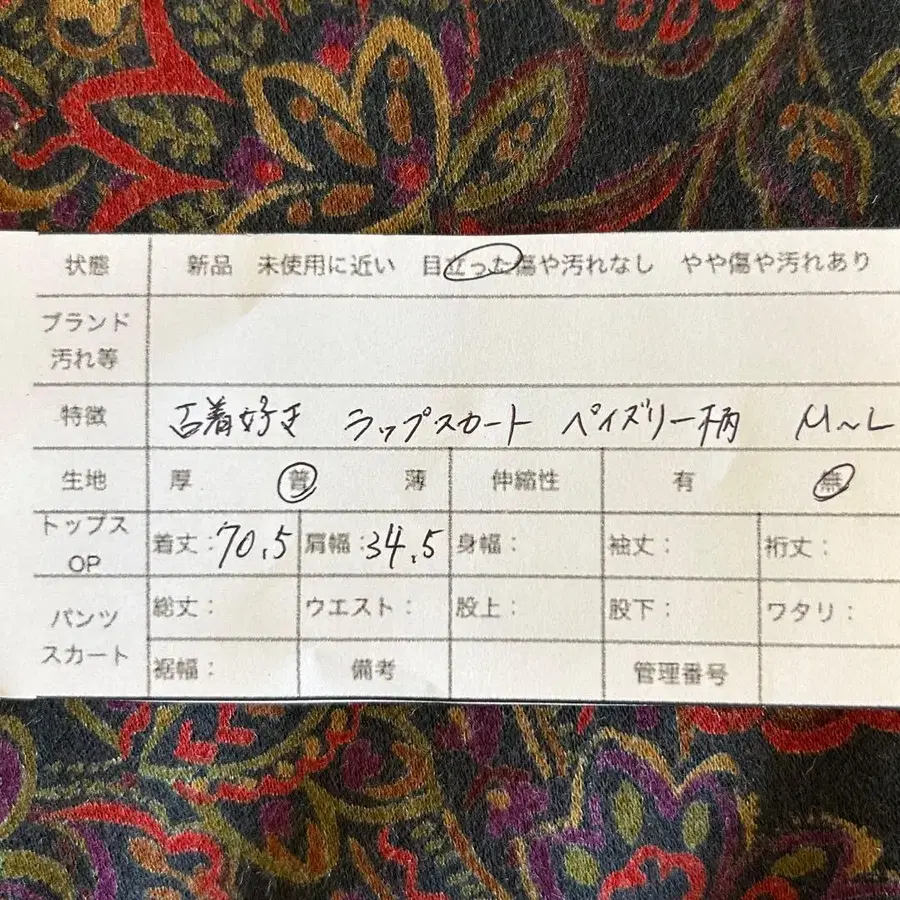 状態 新品 未使用に近い 目立った傷や汚れなし やや傷や汚れあり
ブランド
汚れ等
特徴 古着好き ラップスカート ペイズリー柄 M〜L
生地 厚 普 薄 伸縮性 有 無
トップス
OP 着丈：70.5 肩幅：34.5 身幅： 袖丈： 裄丈：
パンツ
スカート 総丈： ウエスト： 股上： 股下： ワタリ：
裾幅： 備考 管理番号